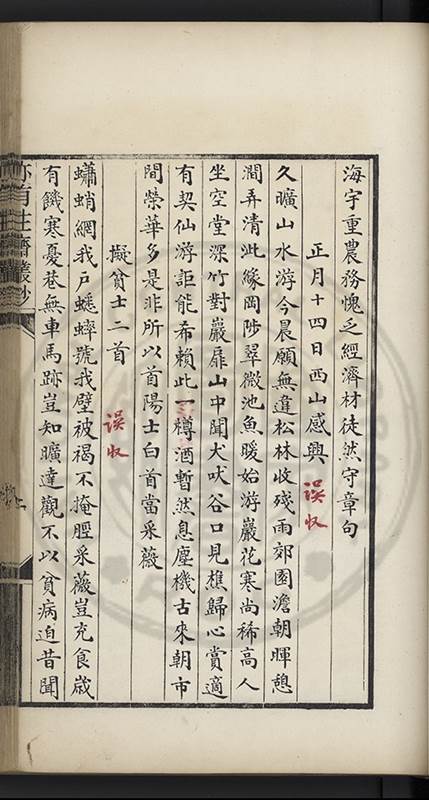 海宇重農務愧乏經濟材徒然守章句
正月十四日西山感興
誤收
久曠山水游今晨願無違松林收殘雨郊園澹朝暉憩
澗弄清泚緣岡陟翠微池魚暖始游巖花寒尚稀高人
坐空堂深竹對巖扉山中聞犬吠谷口見樵歸心賞適
有契仙游詎能希賴此一樽酒暫然息塵機古來朝市
間榮華多是非所以首陽士白首當采薇
擬貧士二首
誤收
蠨蛸網我戶蟋蟀號我壁被褐不掩脛采薇豈充食歲
有饑寒憂巷無車馬跡豈知曠達觀不以貧病迫昔聞
亦有生齋叢鈔